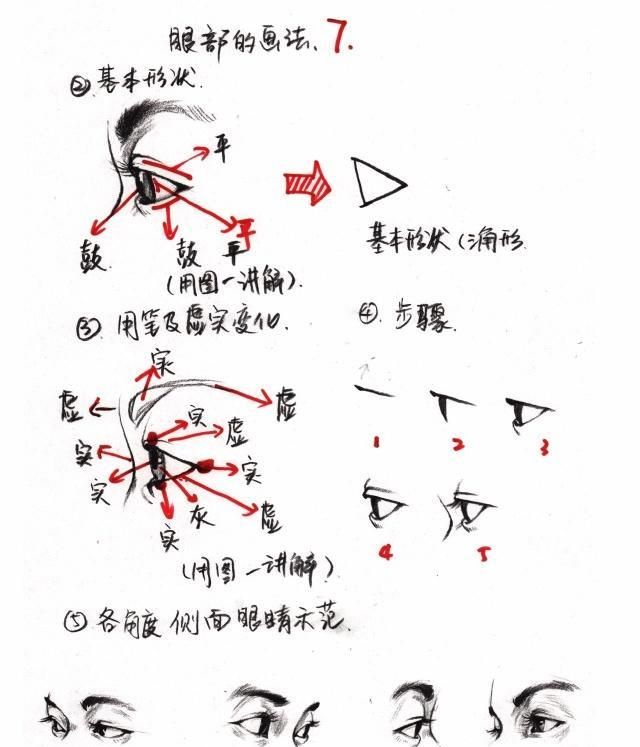 眼部的画法、7.
②.基本形状.
平
鼓.
鼓
平
平
(用图一讲解).
基本形状(三角形
③.用笔及虚实变化.
④.步骤.
实
虚
虚
实
虚
实
实
实
实
灰
虚
(用图一讲解)
1
2
3
4
5
⑤各角度侧面眼睛示范.